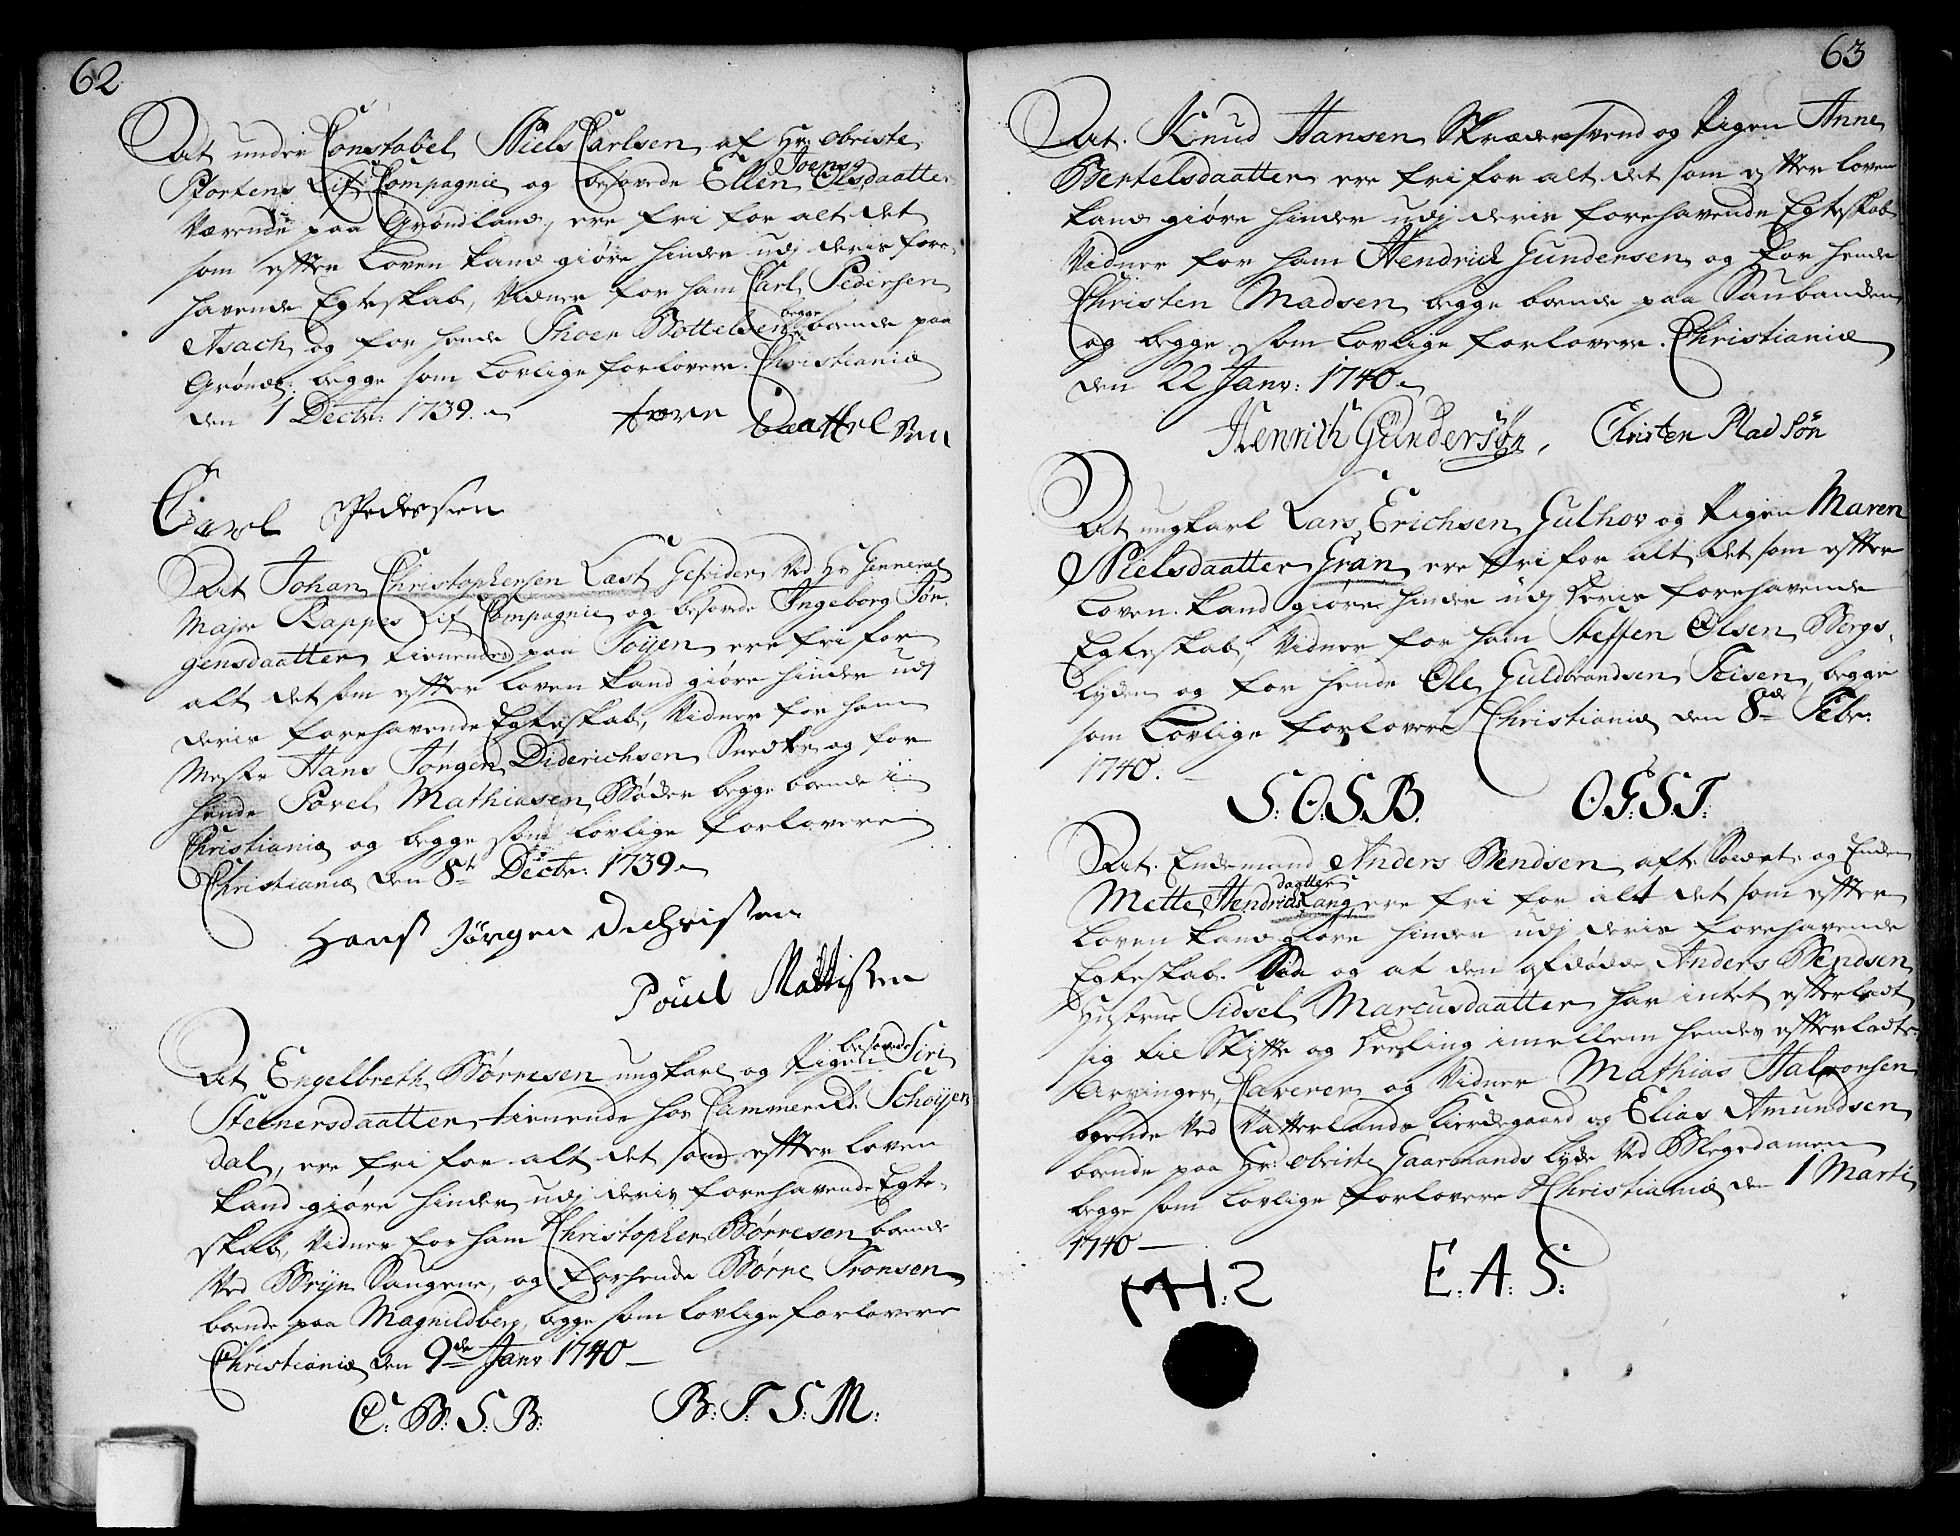 62
At under Constabel Niels Carlsen af Hr: Obriste
Stortens Lif Compagnie og besovede Ellen Olsdaatter
Værende paa Grønland, ere fri for alt det
som efter Loven kand giøre hinder udj deris fore-
havende Egteskab, Vidner for ham Carl Pedersen
Asach og for hende Thoer Bottelsen begge boende paa
Grønl: begge som Lovlige forlovere. Christiania
den 1 Dectr: 1739.
tore Baattelsen
Carl Pedersen
At Johan Christophersen Last Gefrider Ved Hr Genneral
Major Rappes Lif Compagnie og besovede Ingeborg Jør-
gensdaatter tienende paa Tøyen ere fri for
alt det som efter Loven kand giøre hinder udj
deris forehavende Egteskab, Vidner for ham
Mester Hans Jørgen Diderichsen Snedker og for
hende Povel Mathiasen Bøder begge boende i
Christiania og begge som lovlige forlovere
Christiania den 8t Dectr: 1739
Hans Jørgen Dichrisen
Pouel Mattissen
At Engelbreth Børresen ungkarl og Pigen besovede Siri
Steenersdaatter tienende hos Cammer R. Schøyen
dal, ere fri for alt det som efter Loven
kand giøre hinder udj deris forehavende Egte-
skab, Vidner for ham Christopher Børresen boende
Ved Bryn Saugene, og for hende Børre Tronsen
boende paa Magnildberg, begge som lovlige forlovere
Christiania den 9de Janv 1740
C. B. S. B: B: T. S. M:
63
At. Knud Hansen Skræder Svend og Pigen Anne
Bertelsdaatter ere fri for alt det som efter Loven
kand giøre hinder udj deris forehavende Egteskab
Vidner for ham Hendrich Gundersen og for hende
Christen Madsen begge boende paa Saubanden
og begge som Lovlige forlovere. Christiania
den 22 Janv: 1740
Henrich Gundersøn, Christen Madsøn
At ungkarl Lars Erichsen Gulhov og Pigen Maren
Nielsdaatter Gran ere fri for alt det som efter
Loven kand giøre hinder udj deris forehavende
Egteskab, Vidner for ham Steffen Olsen Bergs-
lyden og for hende Ole Guldbrandsen Teisen, begge
som Lovlige forlovere Christiania den 8de Febr:
1740.
S: O: S. B. O. G. S. T:
At. Enckemand Anders Bendsen aft: Soldat og Encken
Mette Hendrichsdaatter Lang ere fri for alt det som efter
Loven kand giøre hinder udj deris forehavende
Egteskab. Saa og at den afdøde Anders Bendsen
Hustrue Sidsel Marcusdaatter har intet efterladt
sig til Skifte og Deeling imellem hendes efterladte
Arvinger, Caverer og Vidner Mathias Halvorsen
boende Ved Vatterlands Kirckegaard og Elias Amundsen
boende paa Hr: Obriste Gaarmands Lyde Ved Blegedamen
begge som lovlige forlovere Christiania den 1 Marti
1740
M H: S E: A: S: